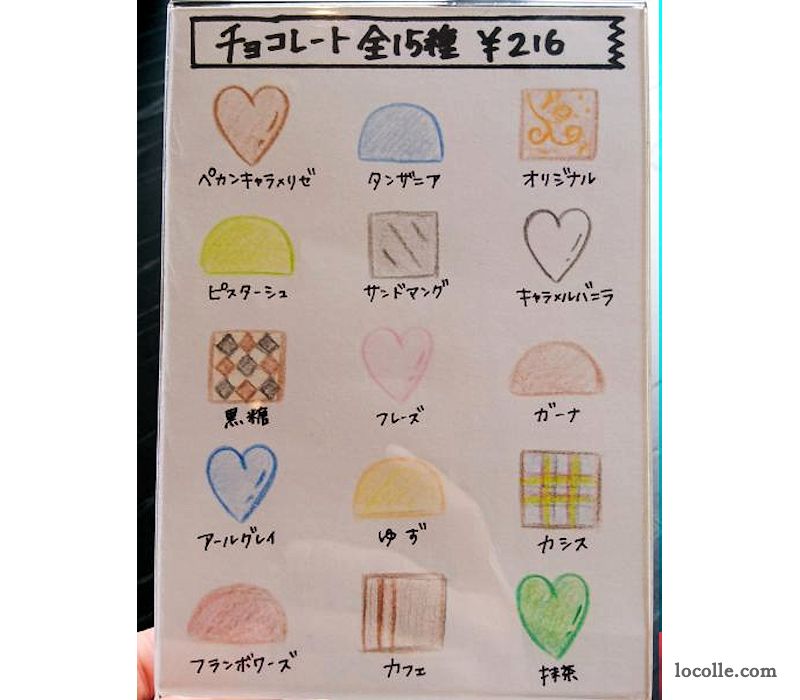 チョコレート 全15種 ¥216
ペカンキャラメリゼ
タンザニア
オリジナル
ピスターシュ
サンドマング
キャラメルバニラ
黒糖
フレーズ
ガーナ
アールグレイ
ゆず
カシス
フランボワーズ
カフェ
抹茶
locolle.com